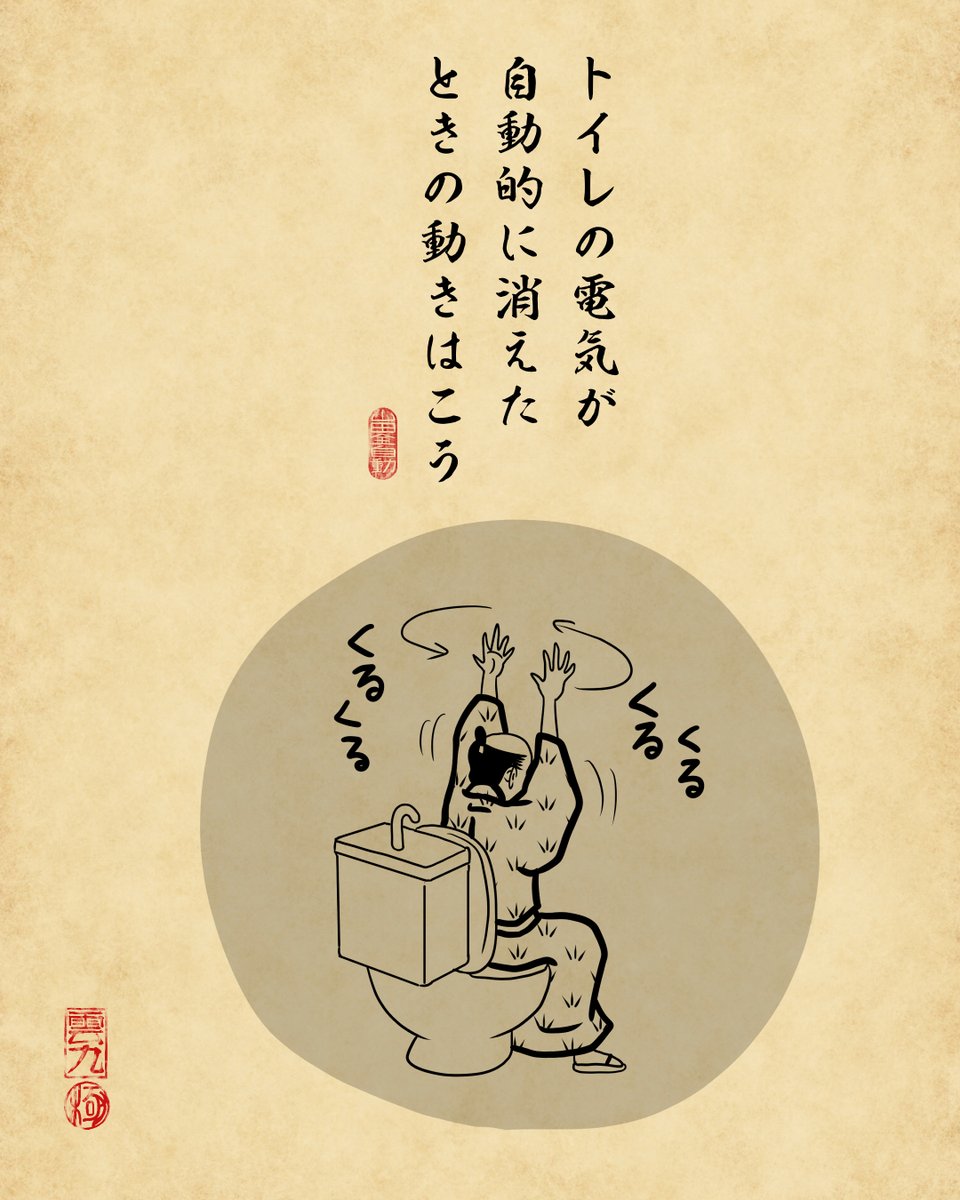 トイレの電気が
自動的に消えた
ときの動きはこう
くる
くる
くる
くる
雲九
極